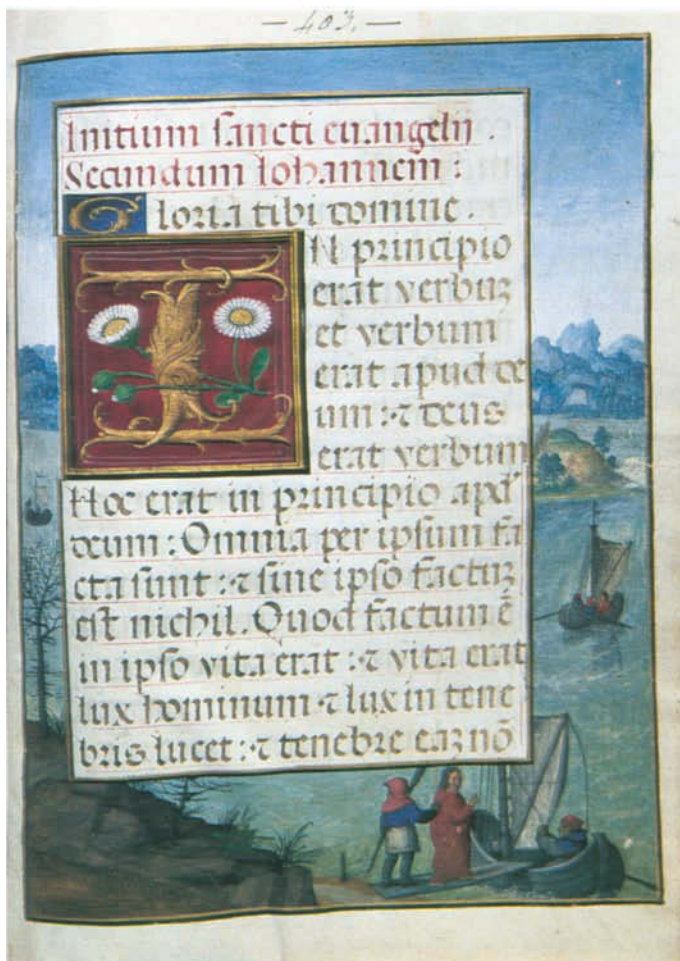 — 403. —
Initium sancti euangelij .
Secundum Iohannem :
Gloria tibi domine .
IN principio
erat verbuꝫ
et verbum
erat apud de
um : ⁊ deus
erat verbum
Hoc erat in principio apd̕
deum : Omnia per ipsum fa
cta sunt : ⁊ sine ipso factuꝫ
est nichil. Quod factum ē
in ipso vita erat : ⁊ vita erat
lux hominum ⁊ lux in tene
bris lucet : ⁊ tenebre eaꝫ nō